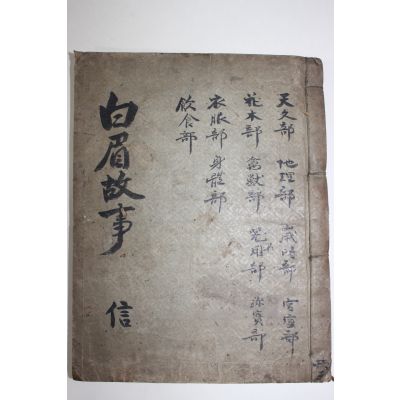 白眉故事 信
天文部 地理部 歲時部 宮室部
花木部 禽獸部 器用部 珍寶部
衣服部 身體部
飮食部